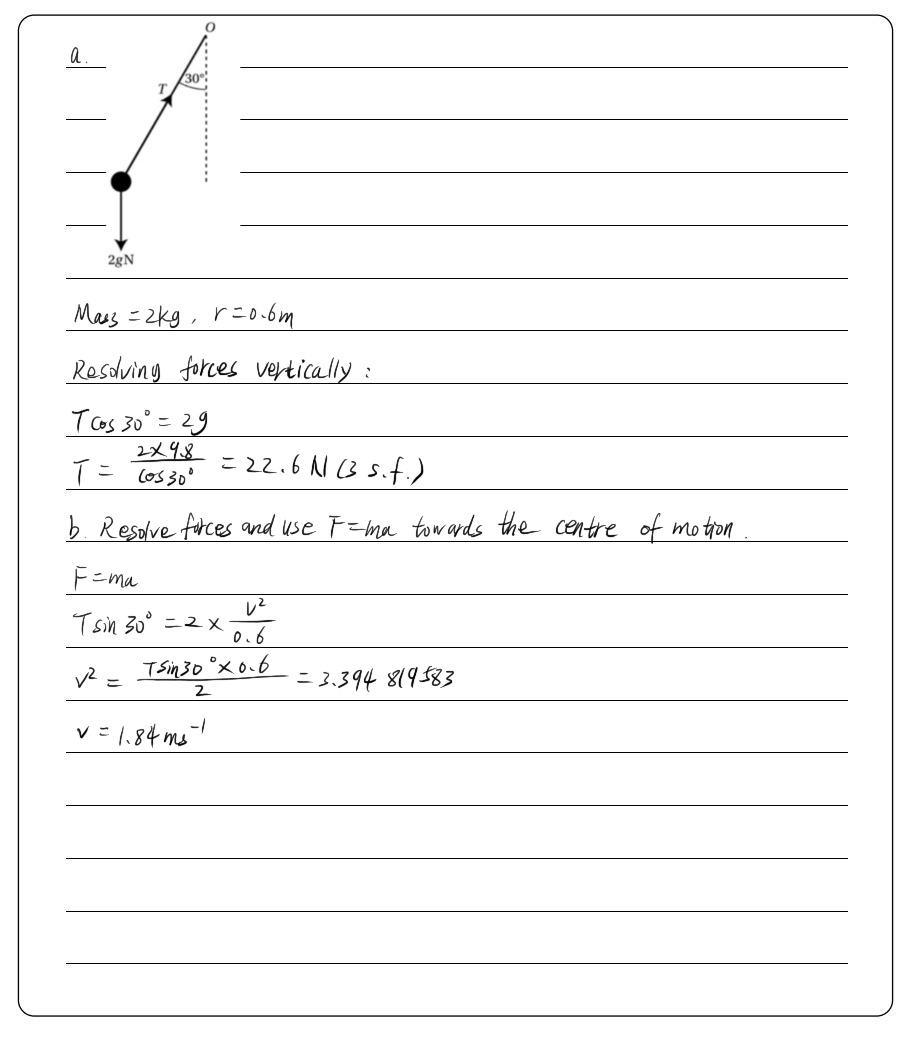 a.
O
30°
T
2gN
Mass = 2kg, r = 0.6m
Resolving forces vertically :
T cos 30° = 2g
T = \frac{2×9.8}{cos30°} = 22.6 N (3 s.f.)
b. Resolve forces and use F=ma towards the centre of motion.
F = ma
T sin 30° = 2 × \frac{v²}{0.6}
v² = \frac{T sin30° × 0.6}{2} = 3.394 819583
v = 1.84 ms⁻¹